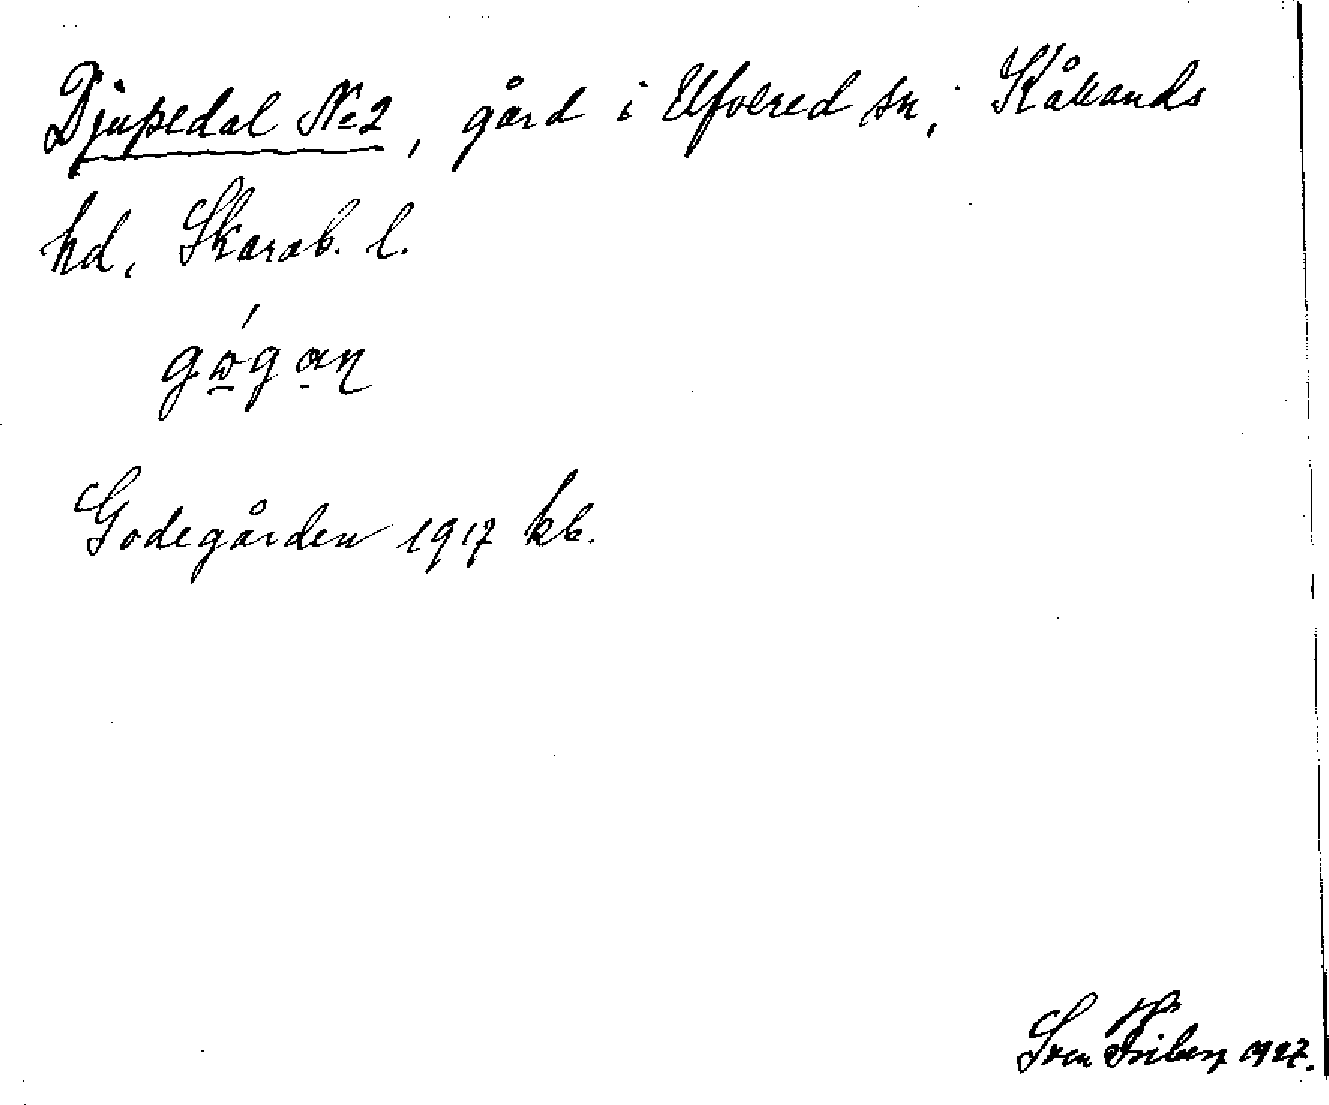 Djupedal No 2, gård i Ulfvered sn, Kåkands
hd, Skarab. l.
Godegården 1917 kb.
Sven Friberg 1927.